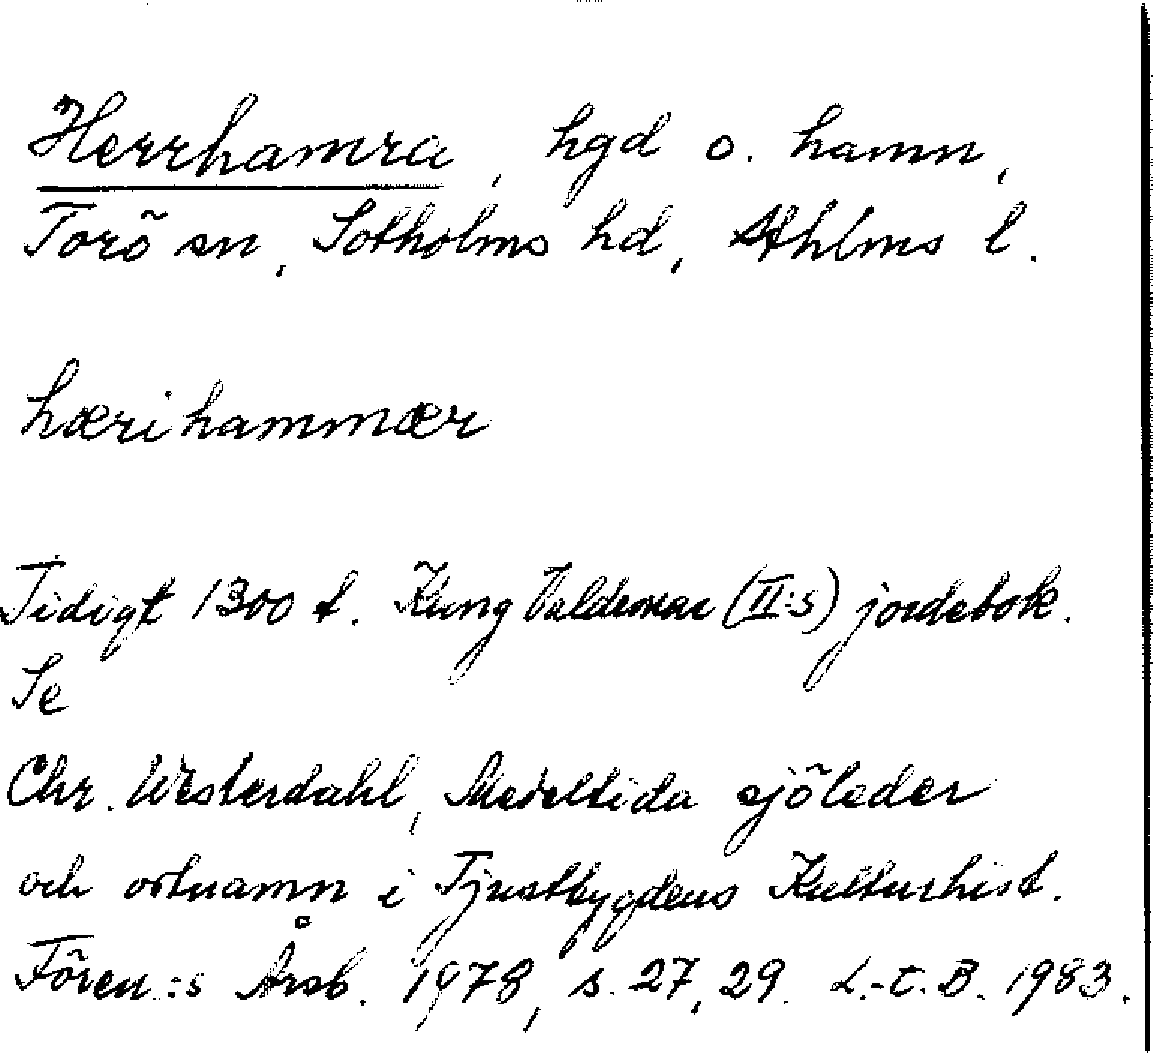 Herrhamra, hgd o. hamn,
Torö sn, Sotholms hd, Sthlms l.
hærihammær
Tidigt 1300 t. Kung Valdemar (II:s) jordebok.
Se
Chr. Westerdahl, Medeltida sjöleder
och ortnamn i Tjustbygdens Kulturhist.
Fören.:s Årsb. 1978, s. 27, 29. L.-t. B. 1983.